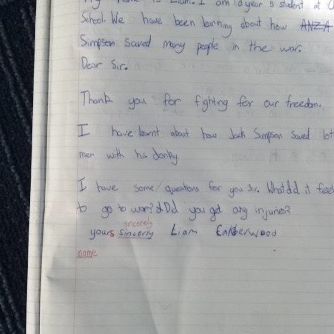 My name is Liam. I am a year 5 student at
School. We have been learning about how ANZA
Simpson saved many people in the war.
Dear Sir.
Thank you for fighting for our freedom.
I have learnt about how Jack Simpson saved lot
men with his donky.
I have some questions for you Sir. What did it feel
to go to war? Did you get any injuries?
sincerely
yours sincerly Liam
name